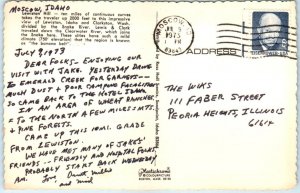 MOSCOW, IDAHO
Lewiston Hill -- ten miles of continuous curves
takes the traveler up 2000 feet to this interesting
view of Lewiston, Idaho and Clarkston, Wash.
divided by the Snake River, which joins the
Clearwater River
above these cities. These cities have a mild
climate (750' elevation) that the region is known
as "the banana belt".
JULY 9, 1973
DEAR FOLKS - ENJOYING OUR
VISIT WITH JAKE. YESTERDAY DROVE
TO EMERALD CREEK FOR GARNETS--
MUCH DUST & POOR CAMPING FACILITIES
SO CAME BACK TO THE HOTEL HERE.
IN AN AREA OF WHEAT RANCHES
+ TO THE NORTH A FEW MILES MTS
+ PINE FORESTS.
CAME UP THIS 10MI. GRADE
FROM LEWISTON.
WE HAVE MET MANY OF JAKES'
FRIENDS -- FRIENDLY AND HELPFUL FOLKS.
PROBABLY START BACK WEDNESDAY
AM. Love
and
MOSCOW
JUL
1973
83843
ADDRESS
EISENHOWER USA
THE WKS
111 FABER STREET
PEORIA HEIGHTS, ILLINOIS
61614